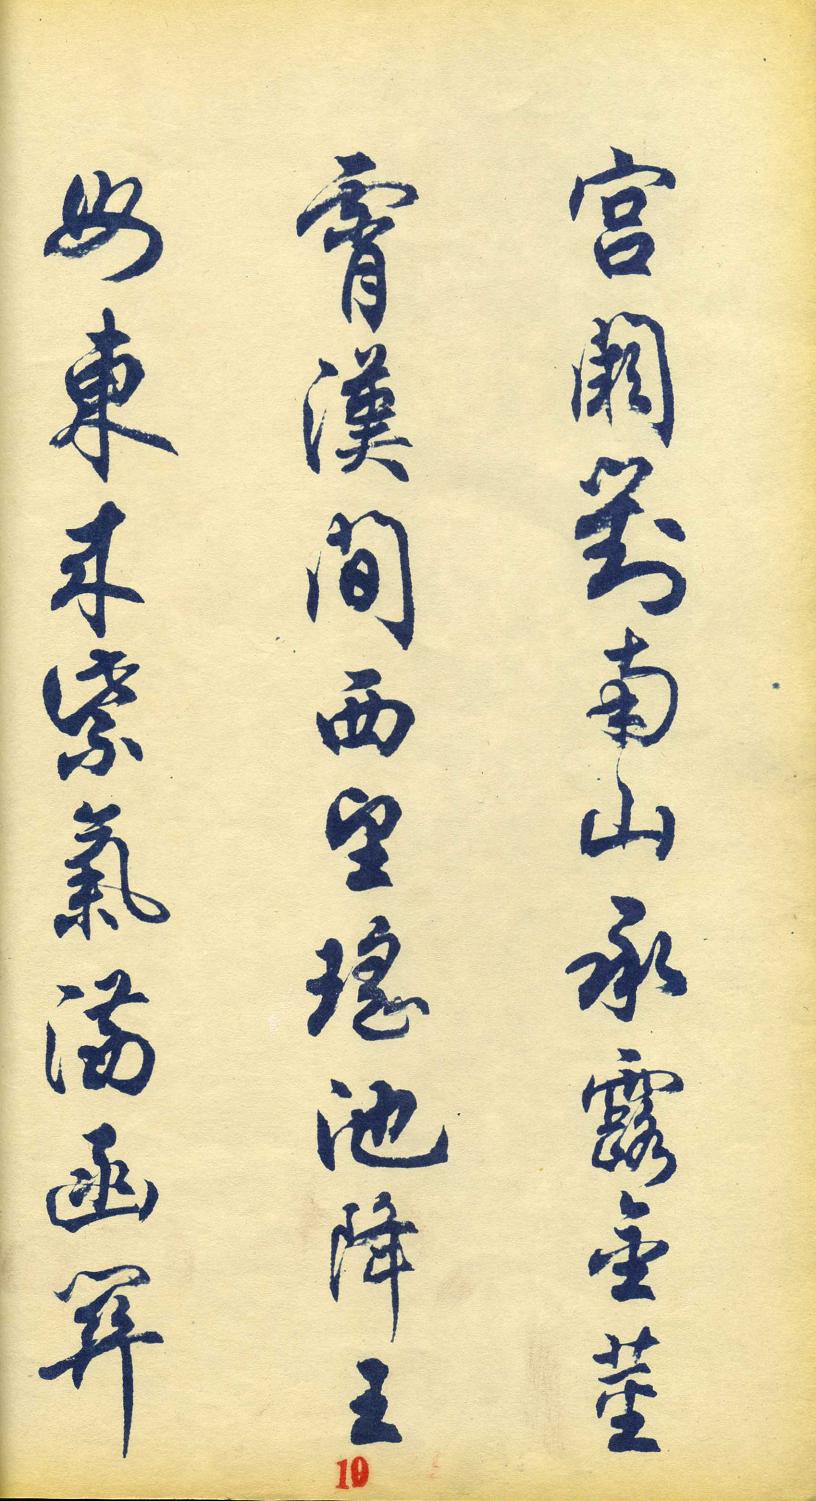 宫闕對南山承露金莖
霄漢間西望瑤池降王
母東来紫氣滿函関
10